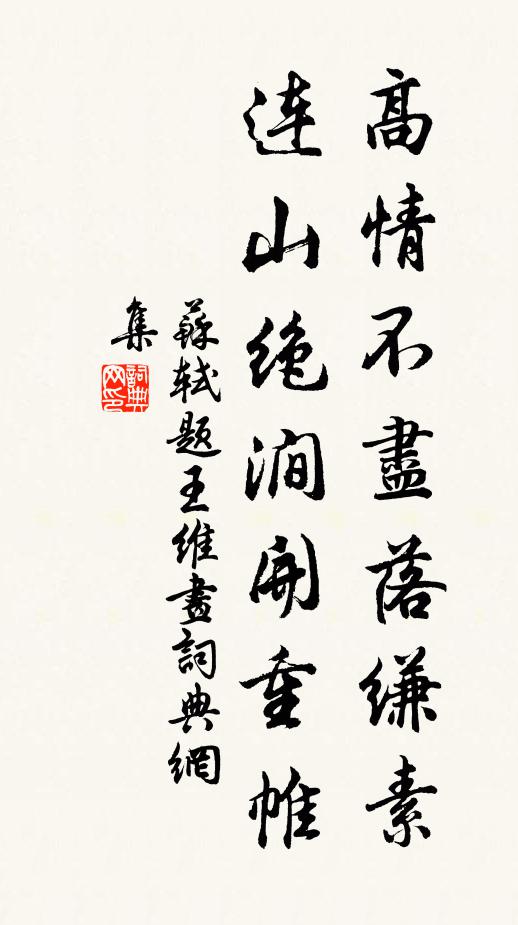 高情不盡落縑素
連山絶澗開重帷
蘇軾題王維畫詞典網
集
詞典
网印